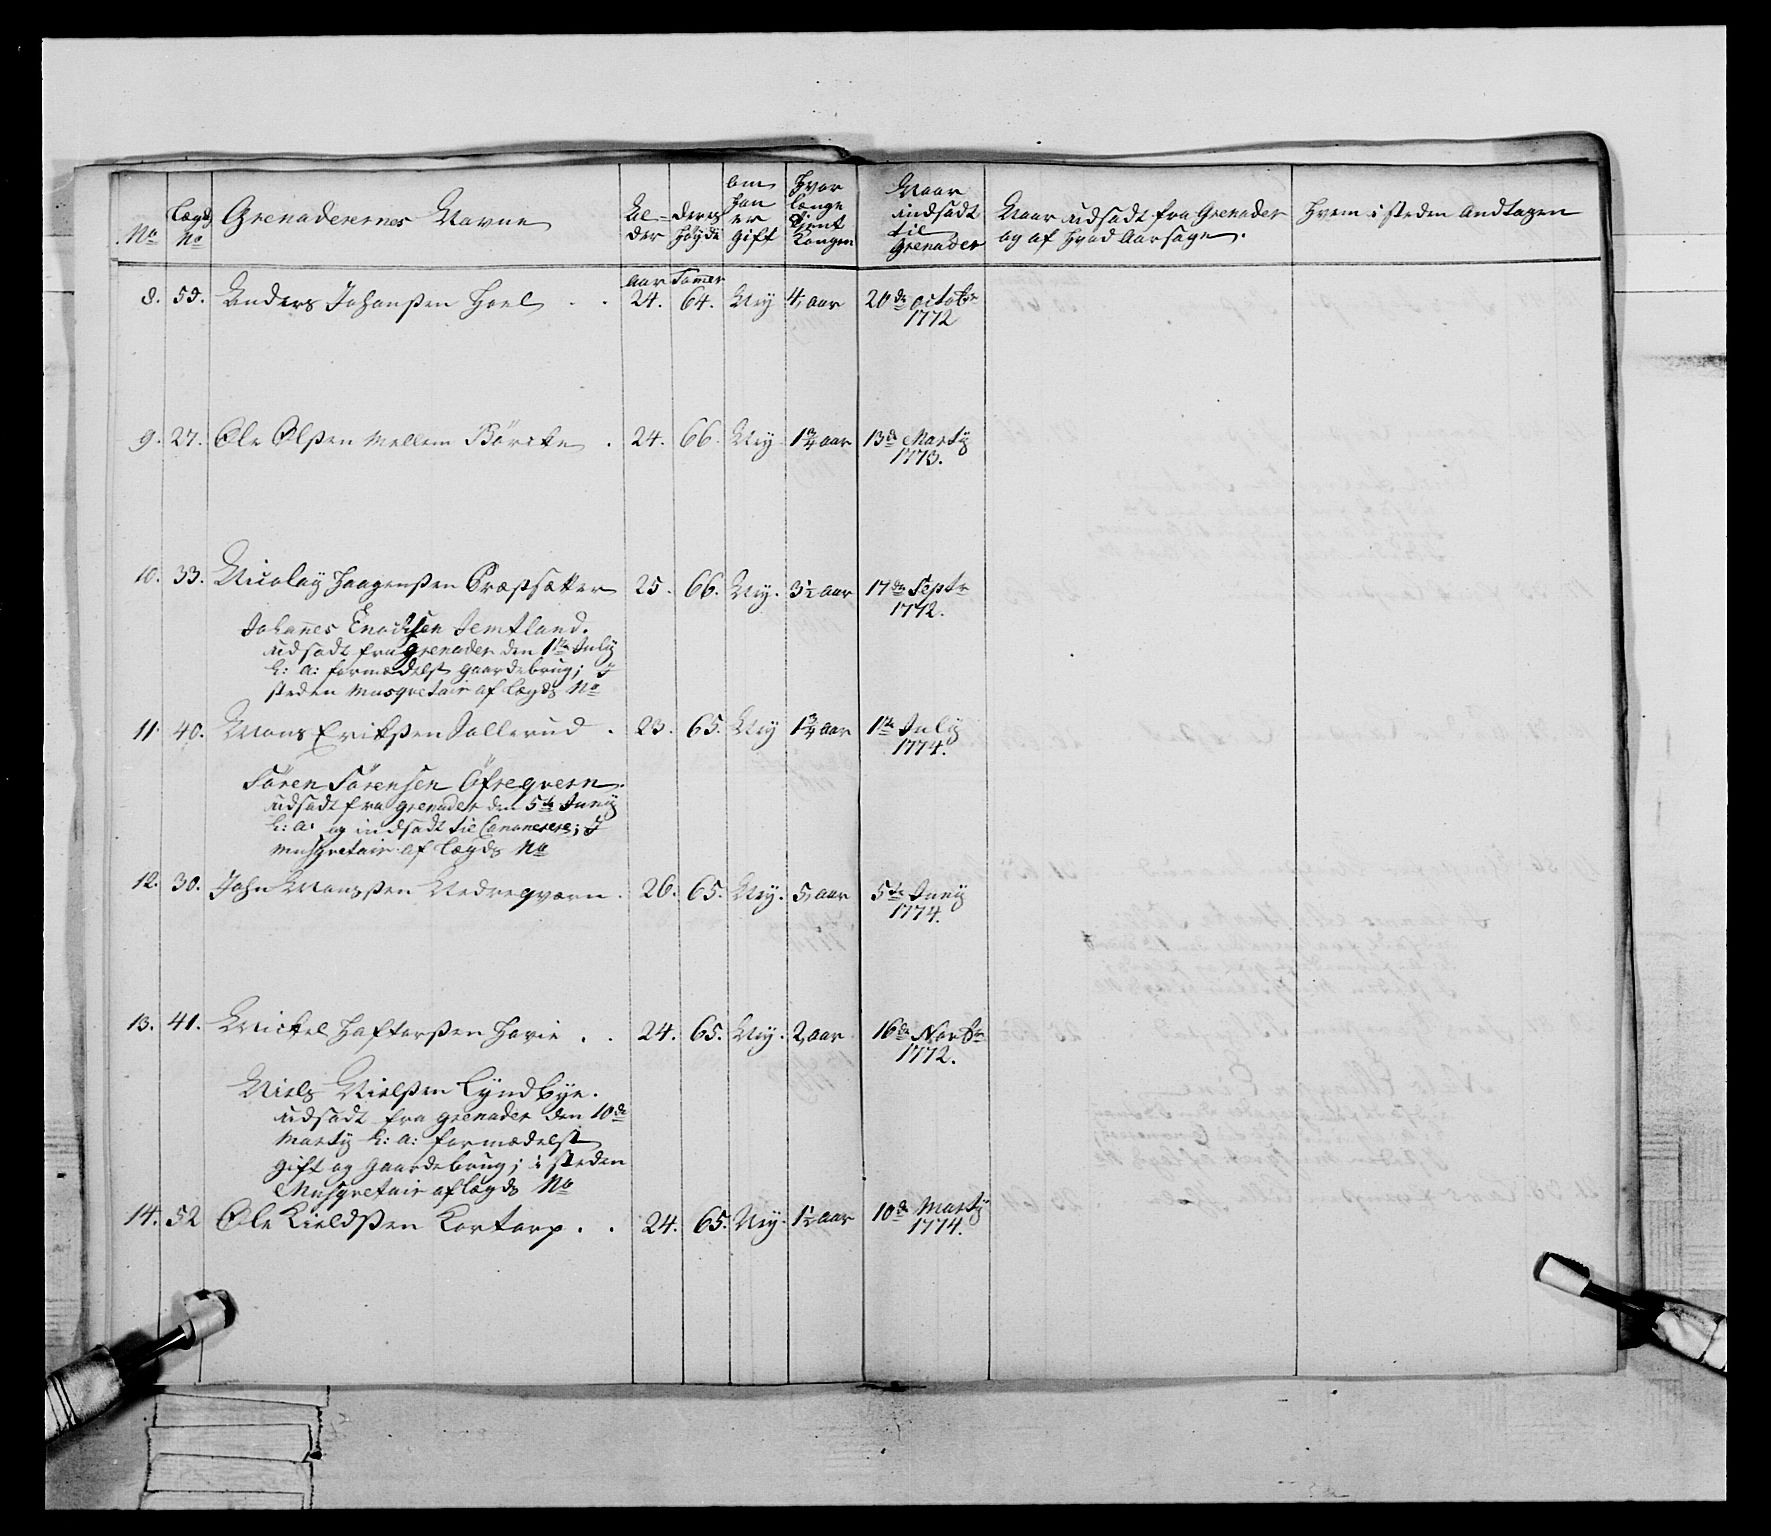 No Lægds No Grenaderernes Navne Al- der Deres Høyde om han er Gift Hvor længe tient Kongen Naar indsadt til Grenader Naar udsadt fra Grenader og af Hvad Aarsage. Hvem i steden Andtagen
Aar Tomer
8. 55. Anders Johanßen Hoel . . 24. 64. Ney 4, aar 20de octobr 1772
9. 27. Ole Olßen Mellem Börcke . 24. 66. Ney 1 3/4 aar 13de Martÿ 1773.
10. 33. Nicolaÿ Haagenßen Præstsætter 25. 66. Ney. 3 1/2 aar 17de Septr 1772.
Johannes Enochsen Jemtland.
udsadt fra Grenader den 1te Julÿ
h: a: formedelst gaardebrug; I
steden Musqvetair af Lægds No
11. 40. Mons Erikßen Sollerud . 23. 65. Ney 1 3/4 aar 1te Julÿ 1774.
Sören Sörensen Öfreqvern.
udsadt fra Grenader den 5te Junÿ
h: a: og indsadt til Canonerere; I
Musqvetair af Lægds No
12. 30. John Monsßen Nedreqværn. 26. 65. Ney. 5, aar 5te Junÿ 1774.
13. 41. Mickel Haftorßen Hovie . . 24. 65. Ney. 2, aar 16de Novbr 1772.
Niels Nielßen Lyndbye.
udsadt fra Grenader den 10de
Martÿ h: a: formedelst
gift og gaardebrug; i steden
Musqvetair af Lægds No
14. 52 Ole Kieldßen Kortorp. . 24. 65. Ney. 1 1/2 aar 10de Martÿ 1774.